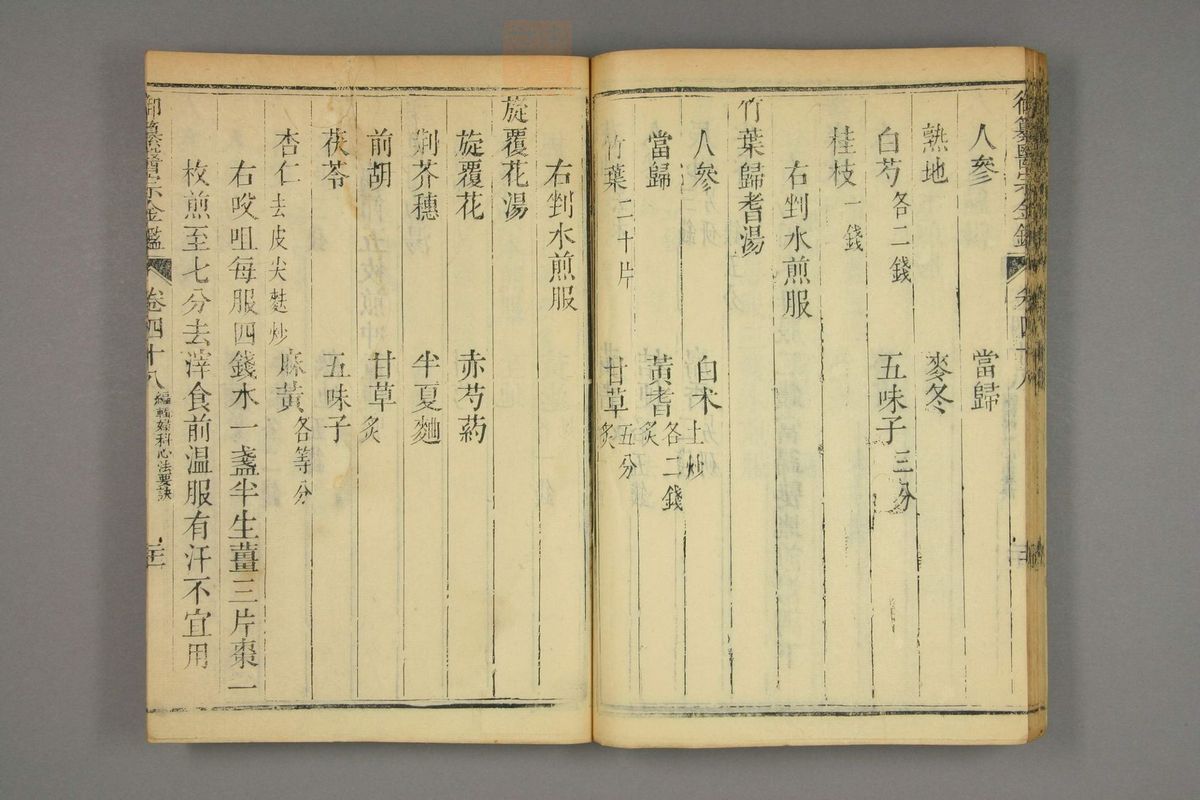 御纂醫宗金鑑 卷四十八
人參 當歸
熟地 麥冬
白芍各二錢 五味子三分
桂枝一錢
右剉水煎服
竹葉歸耆湯
人參 白朮土炒
當歸 黃耆炙各二錢
竹葉二十片 甘草炙五分
右剉水煎服
旋覆花湯
旋覆花 赤芍藥
荆芥穗 半夏麯
前胡 甘草炙
茯苓 五味子
杏仁去皮尖麩炒 麻黃各等分
右㕮咀每服四錢水一盞半生薑三片棗一
枚煎至七分去滓食前温服有汗不宜用
御纂醫宗金鑑 卷四十八 編輯婦科心法要訣